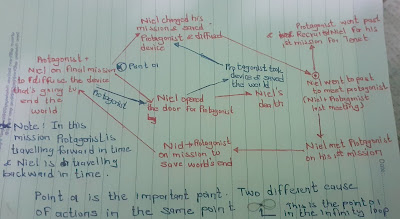 Niel changed his
mission & saved
Protagonist & diffused
device
Protagonist went past
& Recruited Niel for his
1st mission for Tenet
Protagonist +
Niel on final mission
to diffuse the device
that's going to
end the
world
Point a
Protagonist took
device & saved
the world
Niel went to past
to meet protagonist
(Niel & Protagonist
last meeting)
Protagonist
Niel opened
the door for Protagonist
Niel's
death
Note! In this
mission Protagonist is
travelling forward in time
& Niel is travelling
backward in time.
Niel → Protagonist
on mission to
save world's end
Niel met Protagonist
on his 1st mission
Point a is the important point. Two different cause
of actions in the same point
This is the point a
in the infinity loop